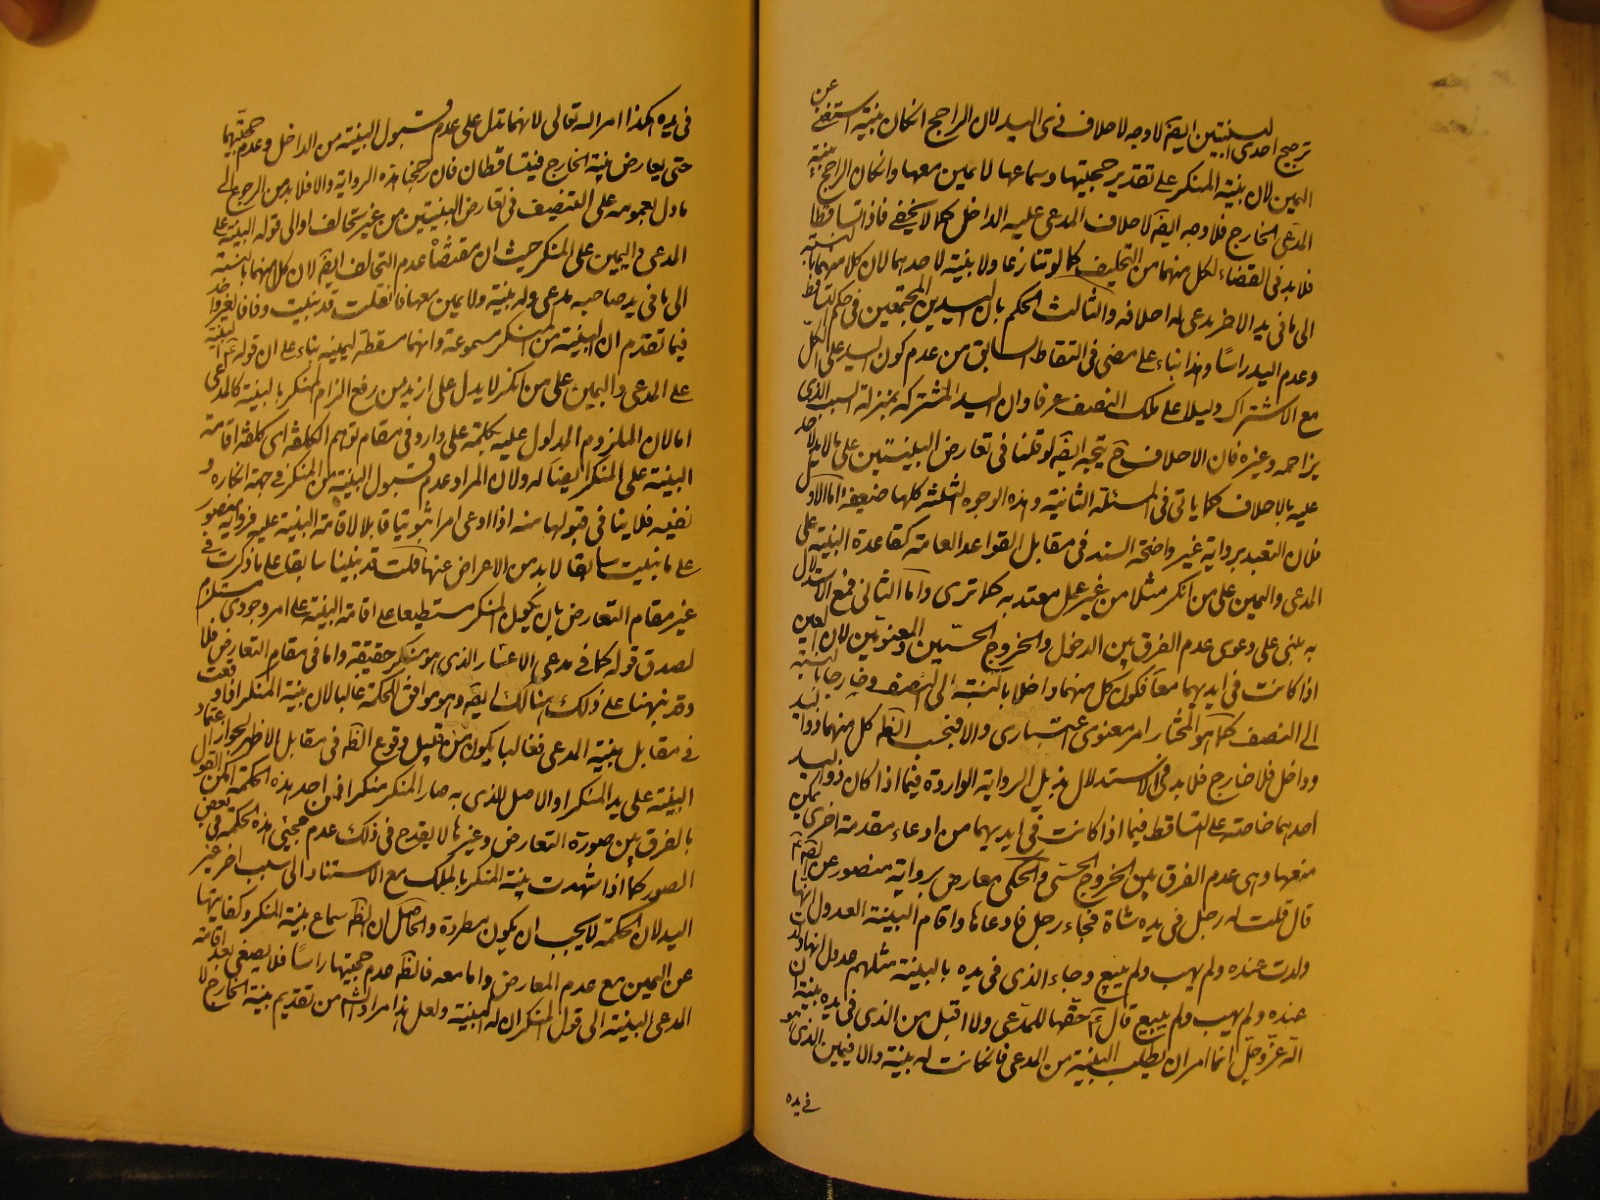 ترجيح احدى البينتين ايضا لا وجه لاحلاف ذى اليد لان الراجح انكان بينته استغنى عن
اليمين لان بينة المنكر على تقدير حجيتها وسماعها لا يمين معها وانكان الراجح بينة
المدعى الخارج فلا وجه ايضا لاحلاف المدعى عليه الداخل كما لا يخفى فاذا تساقطا
فلا بد فى القضاء لكل منهما من التحليف كما لو تنازعا ولا بينة لاحدهما لان كلا منهما بالنسبة
الى ما فى يد الاخر يدعى له احلافه والثالث الحكم بان اليدين المجتمعين فى حكم التساقط
وعدم اليد راسا وهذا بناء على مضى فى التقاط السابق من عدم كون اليد على الكل
مع الاشتراك دليلا على ملك النصف عرفا وان اليد المشتركة بمنزلة السبب الذى
يزاحمه وغيره فان الاحلاف ح يتجه ايضا لو قلنا فى تعارض البينتين على ما لا يد لاحد
عليه بالاحلاف كما ياتى فى المسئلة الثانية وهذه الوجوه الثلثة كلها ضعيفة اما الاول
فلان التعبد برواية غير واضحة السند فى مقابل القواعد العامة كقاعدة البينة على
المدعى واليمين على من انكر مثلا من غير عمل معتد به كما ترى واما الثانى فمع الاستدلال
به مبنى على دعوى عدم الفرق بين الدخول والخروج الحسيين والمعنويين لان العين
اذا كانت فى ايديهما معا فكون كل منهما داخلا بالنسبة الى النصف وخارجا بالنسبة
الى النصف كما هو المختار امر معنوى اعتبارى والا فبحسب الظ كل منهما ذو اليد
وداخل فلا خارج فلا بد فى الاستدلال بذيل الرواية الواردة فيما اذا كان ذو اليد
احدهما خاصة على التساقط فيما اذا كانت فى ايديهما من ادعاء مقدمة اخرى يمكن
منعها وهى عدم الفرق بين الخروج الحسى والحكمى معارض برواية منصور عن الصم
قال قلت له رجل فى يده شاة فجاء رجل فادعاها واقام البينة العدول انها
ولدت عنده ولم يهب ولم يبع وجاء الذى فى يده بالبينة مثلهم عدول انها ولدت
عنده ولم يهب ولم يبع قال ع حقها للمدعى ولا اقبل من الذى فى يده بينة ان
الله عز وجل انما امر ان يطلب البينة من المدعى فانكانت له بينة والا فيمين الذى هو
فى يده
فى يده هكذا امر الله تعالى لانهما تدل على عدم قبول البينة من الداخل وعدم حجيتها
حتى يعارض بينة الخارج فيتساقطان فان رجحنا هذه الرواية والا فلا بد من الرجوع الى
ما دل بعمومه على التنصيف فى تعارض البينتين من غير تحالف او الى قوله البينة على
المدعى واليمين على المنكر حيث ان مقتضاه عدم التحالف ايضا لان كلا منهما بالنسبة
الى ما فى يد صاحبه مدعى وله بينة ولا يمين معها فان قلت قد بنيت وفاقا لغير واحد
فيما تقدم ان البينة من المنكر مسموعة وانها مسقطة ليمينه بناء على ان قوله ع البينة
على المدعى واليمين على من انكر لا يدل على ازيد من رفع الزام المنكر بالبينة كالمدعى
اما لان الملزوم المدلول عليه بكلمة على وارد فى مقام توهم الكلفة اى كلفة اقامة
البينة على المنكر ايضا له ولان المراد عدم قبول البينة من المنكر فى جهة انكاره و
نفيه فلا ينافى قبولها منه اذا ادعى امرا ثبوتيا قابلا لاقامة البينة عليه فرواية منصور
على ما بنيت سابقا لا بد من الاعراض عنها قلت قد بينا سابقا على ما ذكرت فى
غير مقام التعارض بان يكون المنكر مستطيعا على اقامة البينة على امر وجودى مستلزم
لصدق قوله كما فى مدعى الاعتبار الذى هو منكر حقيقة واما فى مقام التعارض فلا
وقد نبهنا على ذلك هنالك ايضا وهو موافق للحكمة غالبا لان بينة المنكر اذا وقعت
فى مقابل بينة المدعى فغالبا يكون من قبيل وقوع الظ فى مقابل الاظهر لجواز اعتماد
البينة على يد المنكر او الاصل الذى به صار المنكر منكرا فمن اجل هذه الحكمة امكن القول
بالفرق بين صورة التعارض وغيرها لا يقدح فى ذلك عدم مجيئ هذه الحكمة فى بعض
الصور كما اذا شهدت بينة المنكر بالملك مع الاستناد الى سبب اخر غير
اليد لان الحكمة لا يجب ان يكون مطردة والحاصل ان الظ سماع بينة المنكر وكفايتها
عن اليمين مع عدم المعارض واما معه فالظ عدم حجيتها راسا فلا يصغى بعد اقامة
المدعى البينة الى قول المنكر ان له البينة ولعل هذا مراد من تقديم بينة الخارج لا